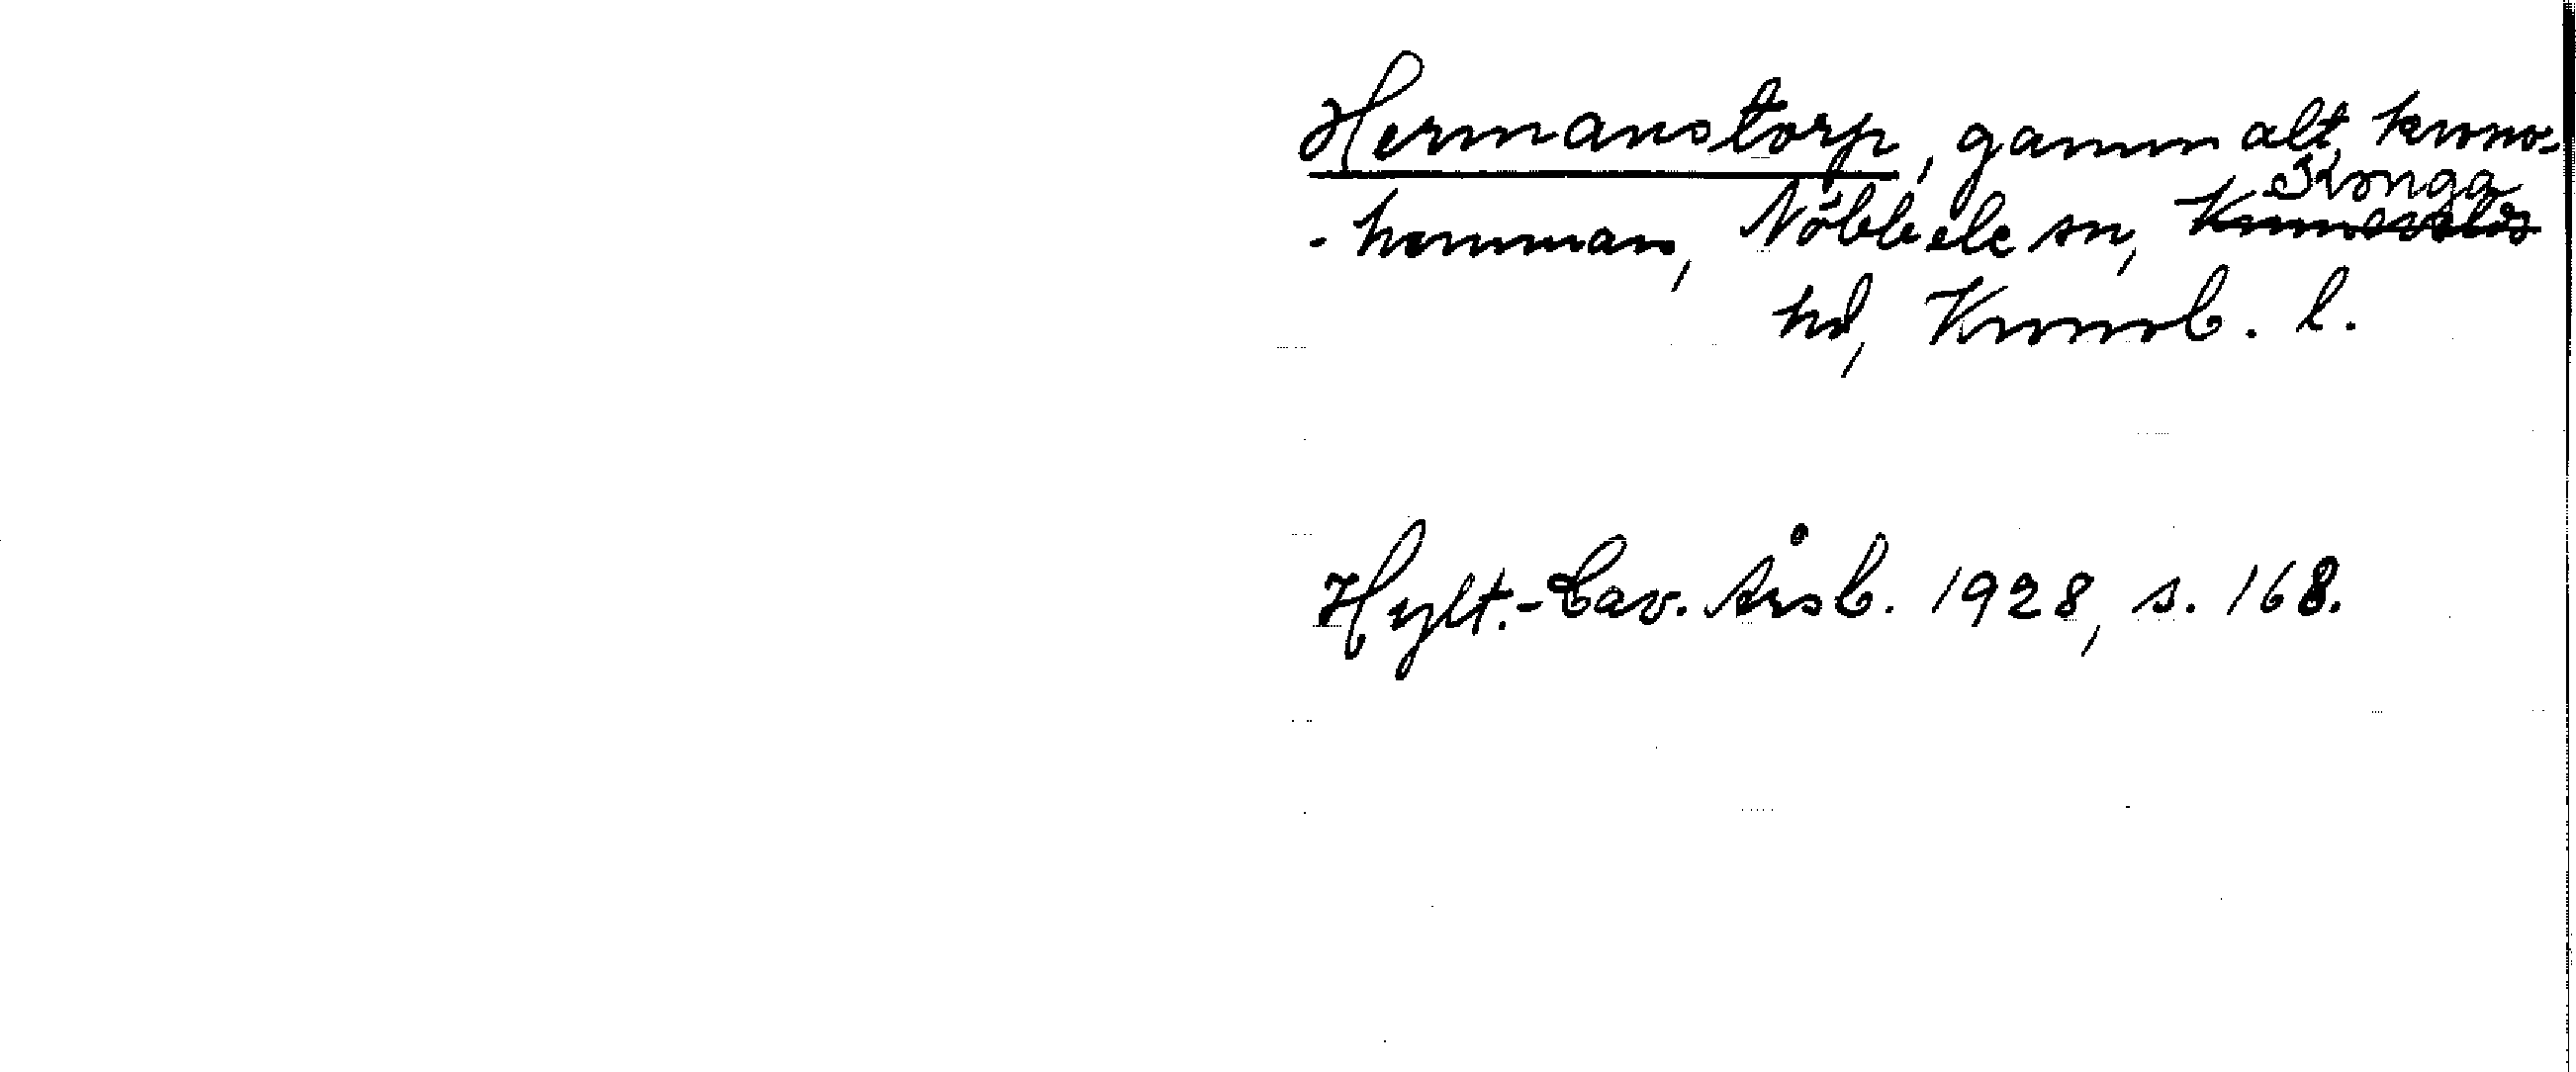 Hermanstorp, gammalt krono-
-hemman, Nöbbele sn, Konga
hd, Kronob. l.
Hylt.-Cav. Årsb. 1928, s. 168.